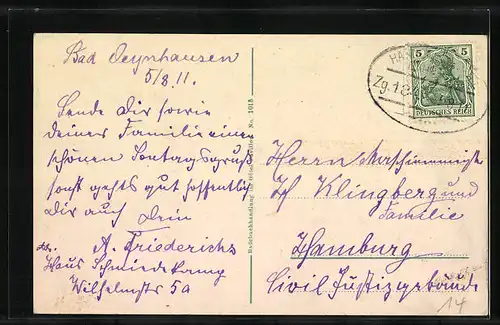 Bad Oeynhausen
5/8.11.
Sende Dir sowie
deiner Familie einen
schönen Sontagsgruß
sonst gehts gut hoffentlich
Dir auch Dein
A. Friederichs
Haus Schmiedekamp
Wilhelmstr 5a
No. 1015
5 5
DEUTSCHES REICH
Zg.12
Herrn Maschinenmeist
Klingberg und
Familie
Hamburg
Civil Justizgebäude
14